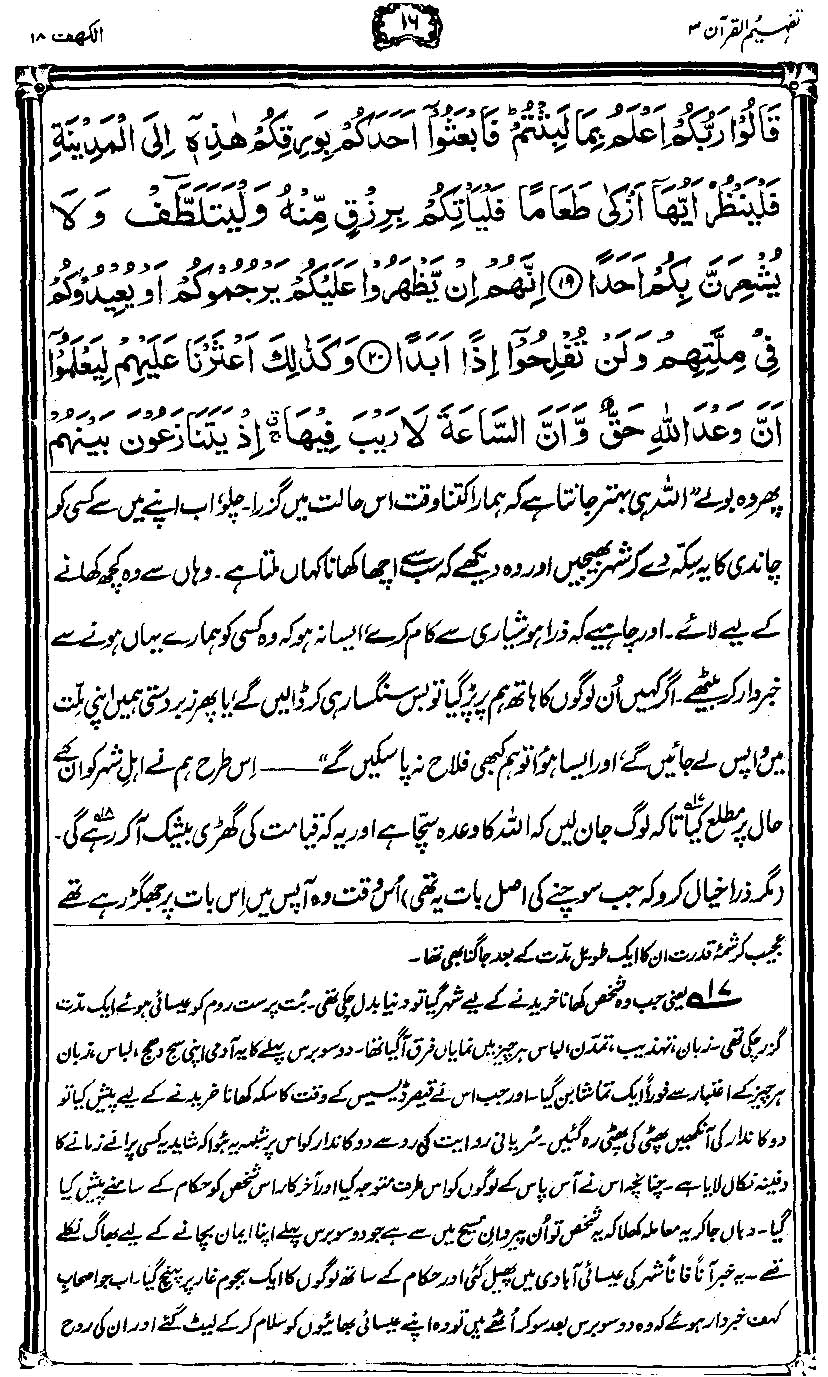 تفہیم القرآن ۳
۱۶
الکہف ۱۸
قَالُوْا رَبُّكُمْ اَعْلَمُ بِمَا لَبِثْتُمْ ؕ فَابْعَثُوْۤا اَحَدَكُمْ بِوَرِقِكُمْ هٰذِهٖۤ اِلَى الْمَدِيْنَةِ
فَلْيَنْظُرْ اَيُّهَاۤ اَزْكٰى طَعَامًا فَلْيَاْتِكُمْ بِرِزْقٍ مِّنْهُ وَلْيَتَلَطَّفْ وَلَا
يُشْعِرَنَّ بِكُمْ اَحَدًا ۝۱۹ اِنَّهُمْ اِنْ يَّظْهَرُوْا عَلَيْكُمْ يَرْجُمُوْكُمْ اَوْ يُعِيْدُوْكُمْ
فِيْ مِلَّتِهِمْ وَلَنْ تُفْلِحُوْۤا اِذًا اَبَدًا ۝۲۰ وَكَذٰلِكَ اَعْثَرْنَا عَلَيْهِمْ لِيَعْلَمُوْۤا
اَنَّ وَعْدَ اللّٰهِ حَقٌّ وَّاَنَّ السَّاعَةَ لَا رَيْبَ فِيْهَا ۚ اِذْ يَتَنَازَعُوْنَ بَيْنَهُمْ
پھر وہ بولے ”اللہ ہی بہتر جانتا ہے کہ ہمارا کتنا وقت اس حالت میں گزرا۔ چلو، اب اپنے میں سے کسی کو
چاندی کا یہ سکّہ دے کر شہر بھیجیں اور وہ دیکھے کہ سب سے اچھا کھانا کہاں ملتا ہے۔ وہاں سے وہ کچھ کھانے
کے لیے لائے۔ اور چاہیے کہ ذرا ہوشیاری سے کام کرے، ایسا نہ ہو کہ وہ کسی کو ہمارے یہاں ہونے سے
خبردار کر بیٹھے۔ اگر کہیں اُن لوگوں کا ہاتھ ہم پر پڑ گیا تو بس سنگسار ہی کر ڈالیں گے، یا پھر زبردستی ہمیں اپنی ملّت
میں واپس لے جائیں گے، اور ایسا ہوا تو ہم کبھی فلاح نہ پا سکیں گے“ ——— اِس طرح ہم نے اہلِ شہر کو ان کے
حال پر مطلع کیا ۱۷ تاکہ لوگ جان لیں کہ اللہ کا وعدہ سچّا ہے اور یہ کہ قیامت کی گھڑی بیشک آ کر رہے گی ۱۸۔
(مگر ذرا خیال کرو کہ جب سوچنے کی اصل بات یہ تھی) اُس وقت وہ آپس میں اِس بات پر جھگڑ رہے تھے
عجیب کرشمۂ قدرت ان کا ایک طویل مدّت کے بعد جاگنا بھی تھا۔
۱۷ یعنی جب وہ شخص کھانا خریدنے کے لیے شہر گیا تو دنیا بدل چکی تھی۔ بُت پرست روم کو عیسائی ہوئے ایک مدّت
گزر چکی تھی۔ زبان، تہذیب، تمدّن، لباس ہر چیز میں نمایاں فرق آ گیا تھا۔ دو سو برس پہلے کا یہ آدمی اپنی سج دھج، لباس، زبان
ہر چیز کے اعتبار سے فوراً ایک تماشا بن گیا۔ اور جب اس نے قیصر ڈیسیس کے وقت کا سکہ کھانا خریدنے کے لیے پیش کیا تو
دوکاندار کی آنکھیں پھٹی کی پھٹی رہ گئیں۔ سُریانی روایت کی رو سے دوکاندار کو اس پر شبہ یہ ہوا کہ شاید یہ کسی پرانے زمانے کا
دفینہ نکال لایا ہے۔ چنانچہ اس نے آس پاس کے لوگوں کو اس طرف متوجہ کیا اور آخر کار اس شخص کو حکام کے سامنے پیش کیا
گیا۔ وہاں جا کر یہ معاملہ کھلا کہ یہ شخص تو اُن پیروانِ مسیح میں سے ہے جو دو سو برس پہلے اپنا ایمان بچانے کے لیے بھاگ نکلے
تھے۔ یہ خبر آناً فاناً شہر کی عیسائی آبادی میں پھیل گئی اور حکام کے ساتھ لوگوں کا ایک ہجوم غار پر پہنچ گیا۔ اب جو اصحابِ
کہف خبردار ہوئے کہ وہ دو سو برس بعد سو کر اُٹھے ہیں تو وہ اپنے عیسائی بھائیوں کو سلام کر کے لیٹ گئے اور ان کی روح